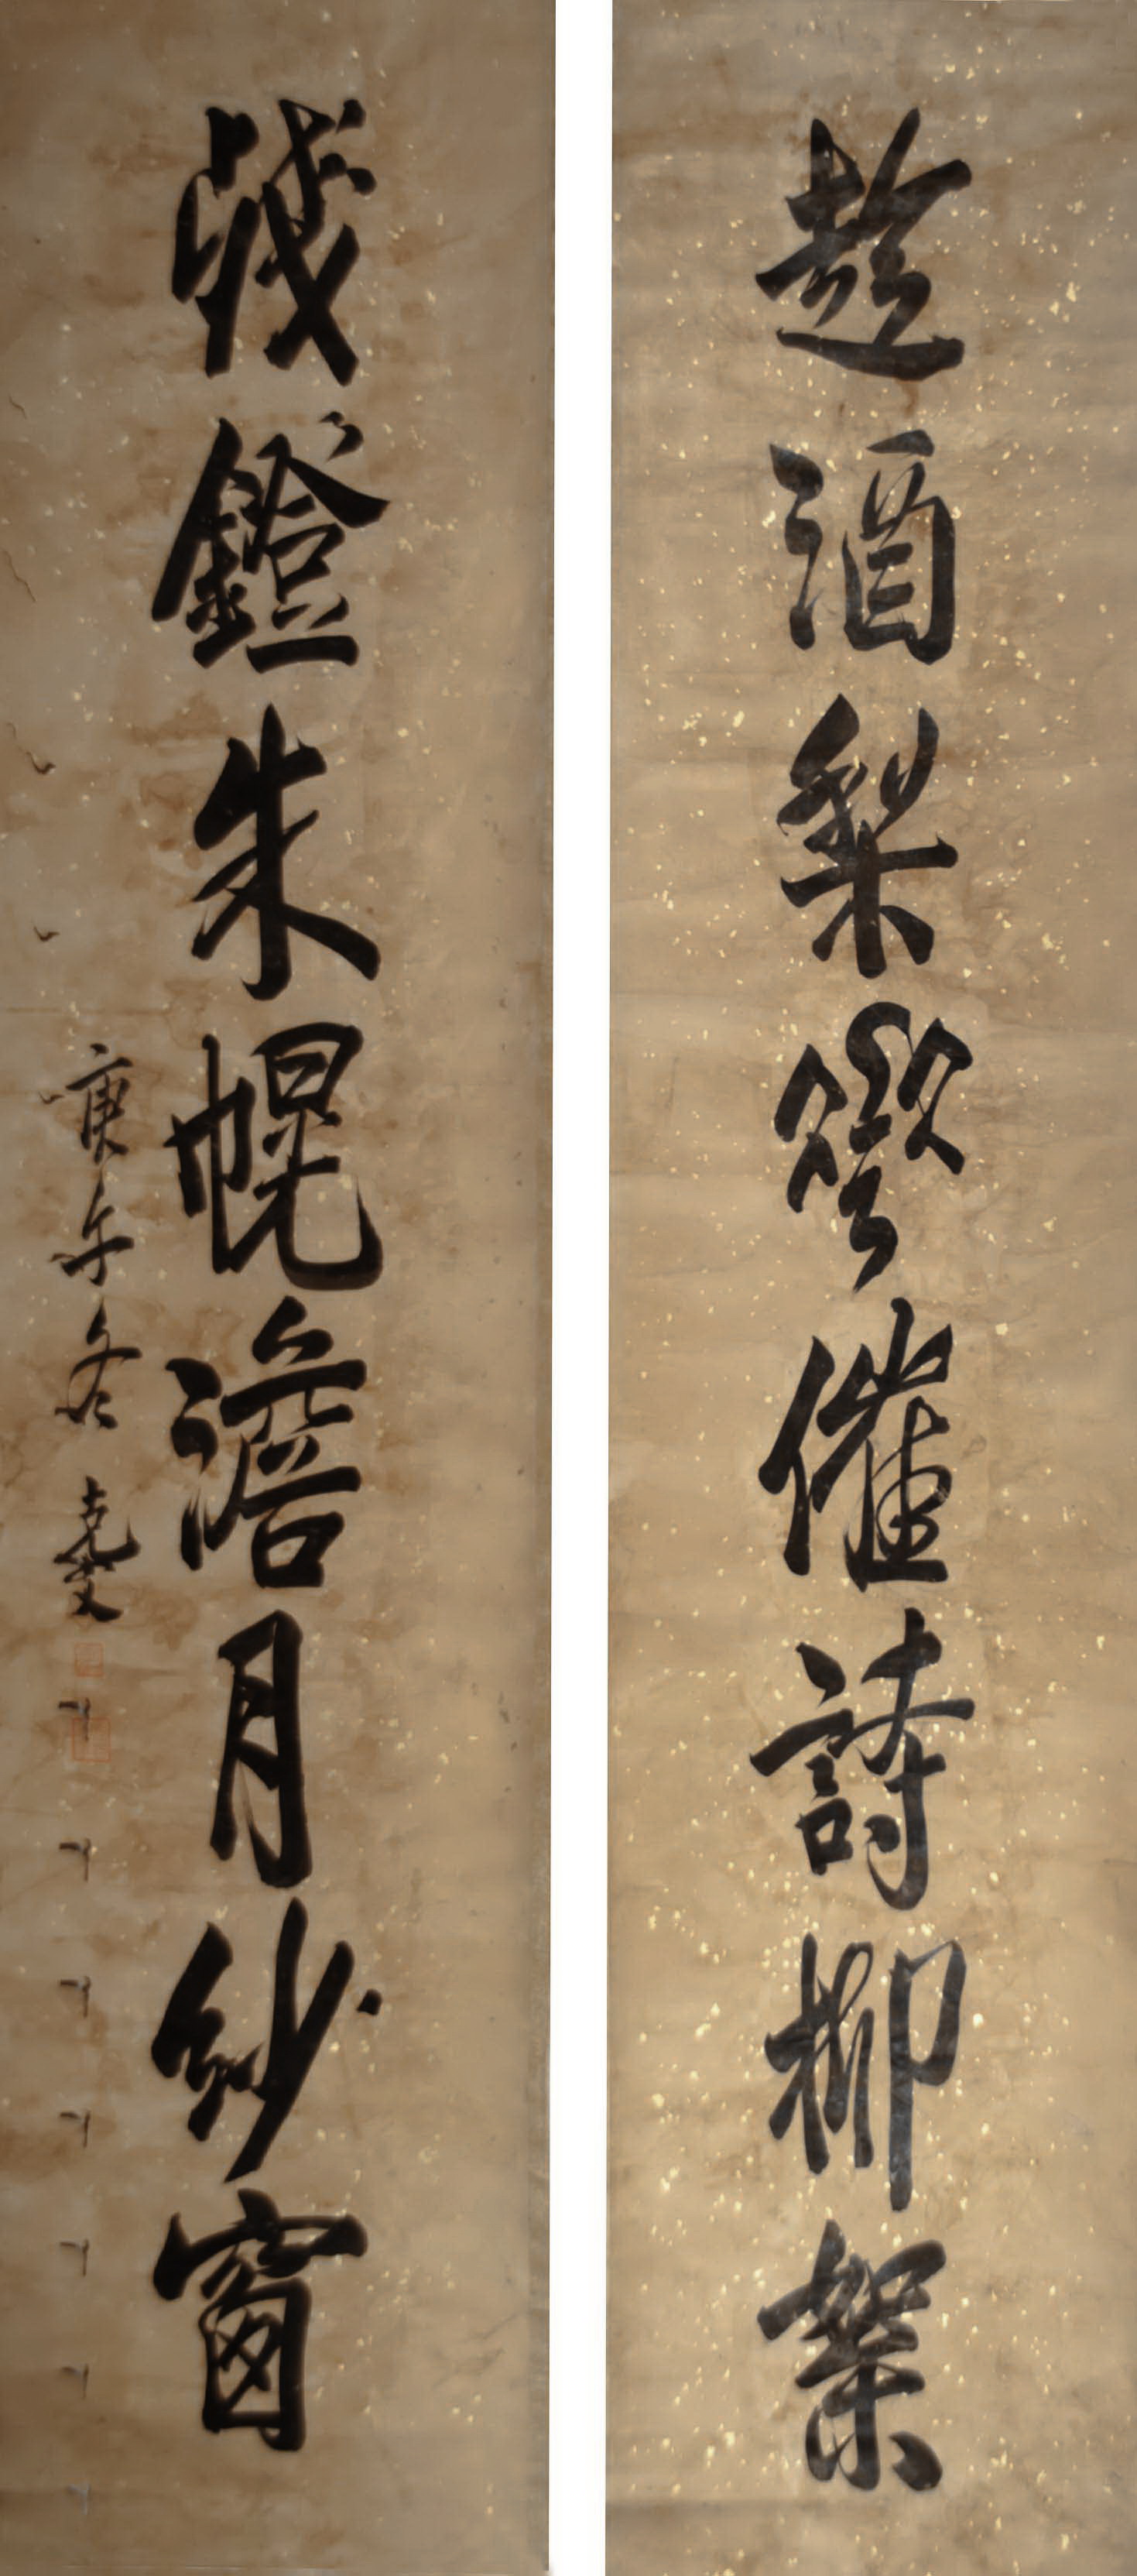 趁酒梨花催詩柳絮
殘鐙朱幌澹月紗窗
庚午冬 克文